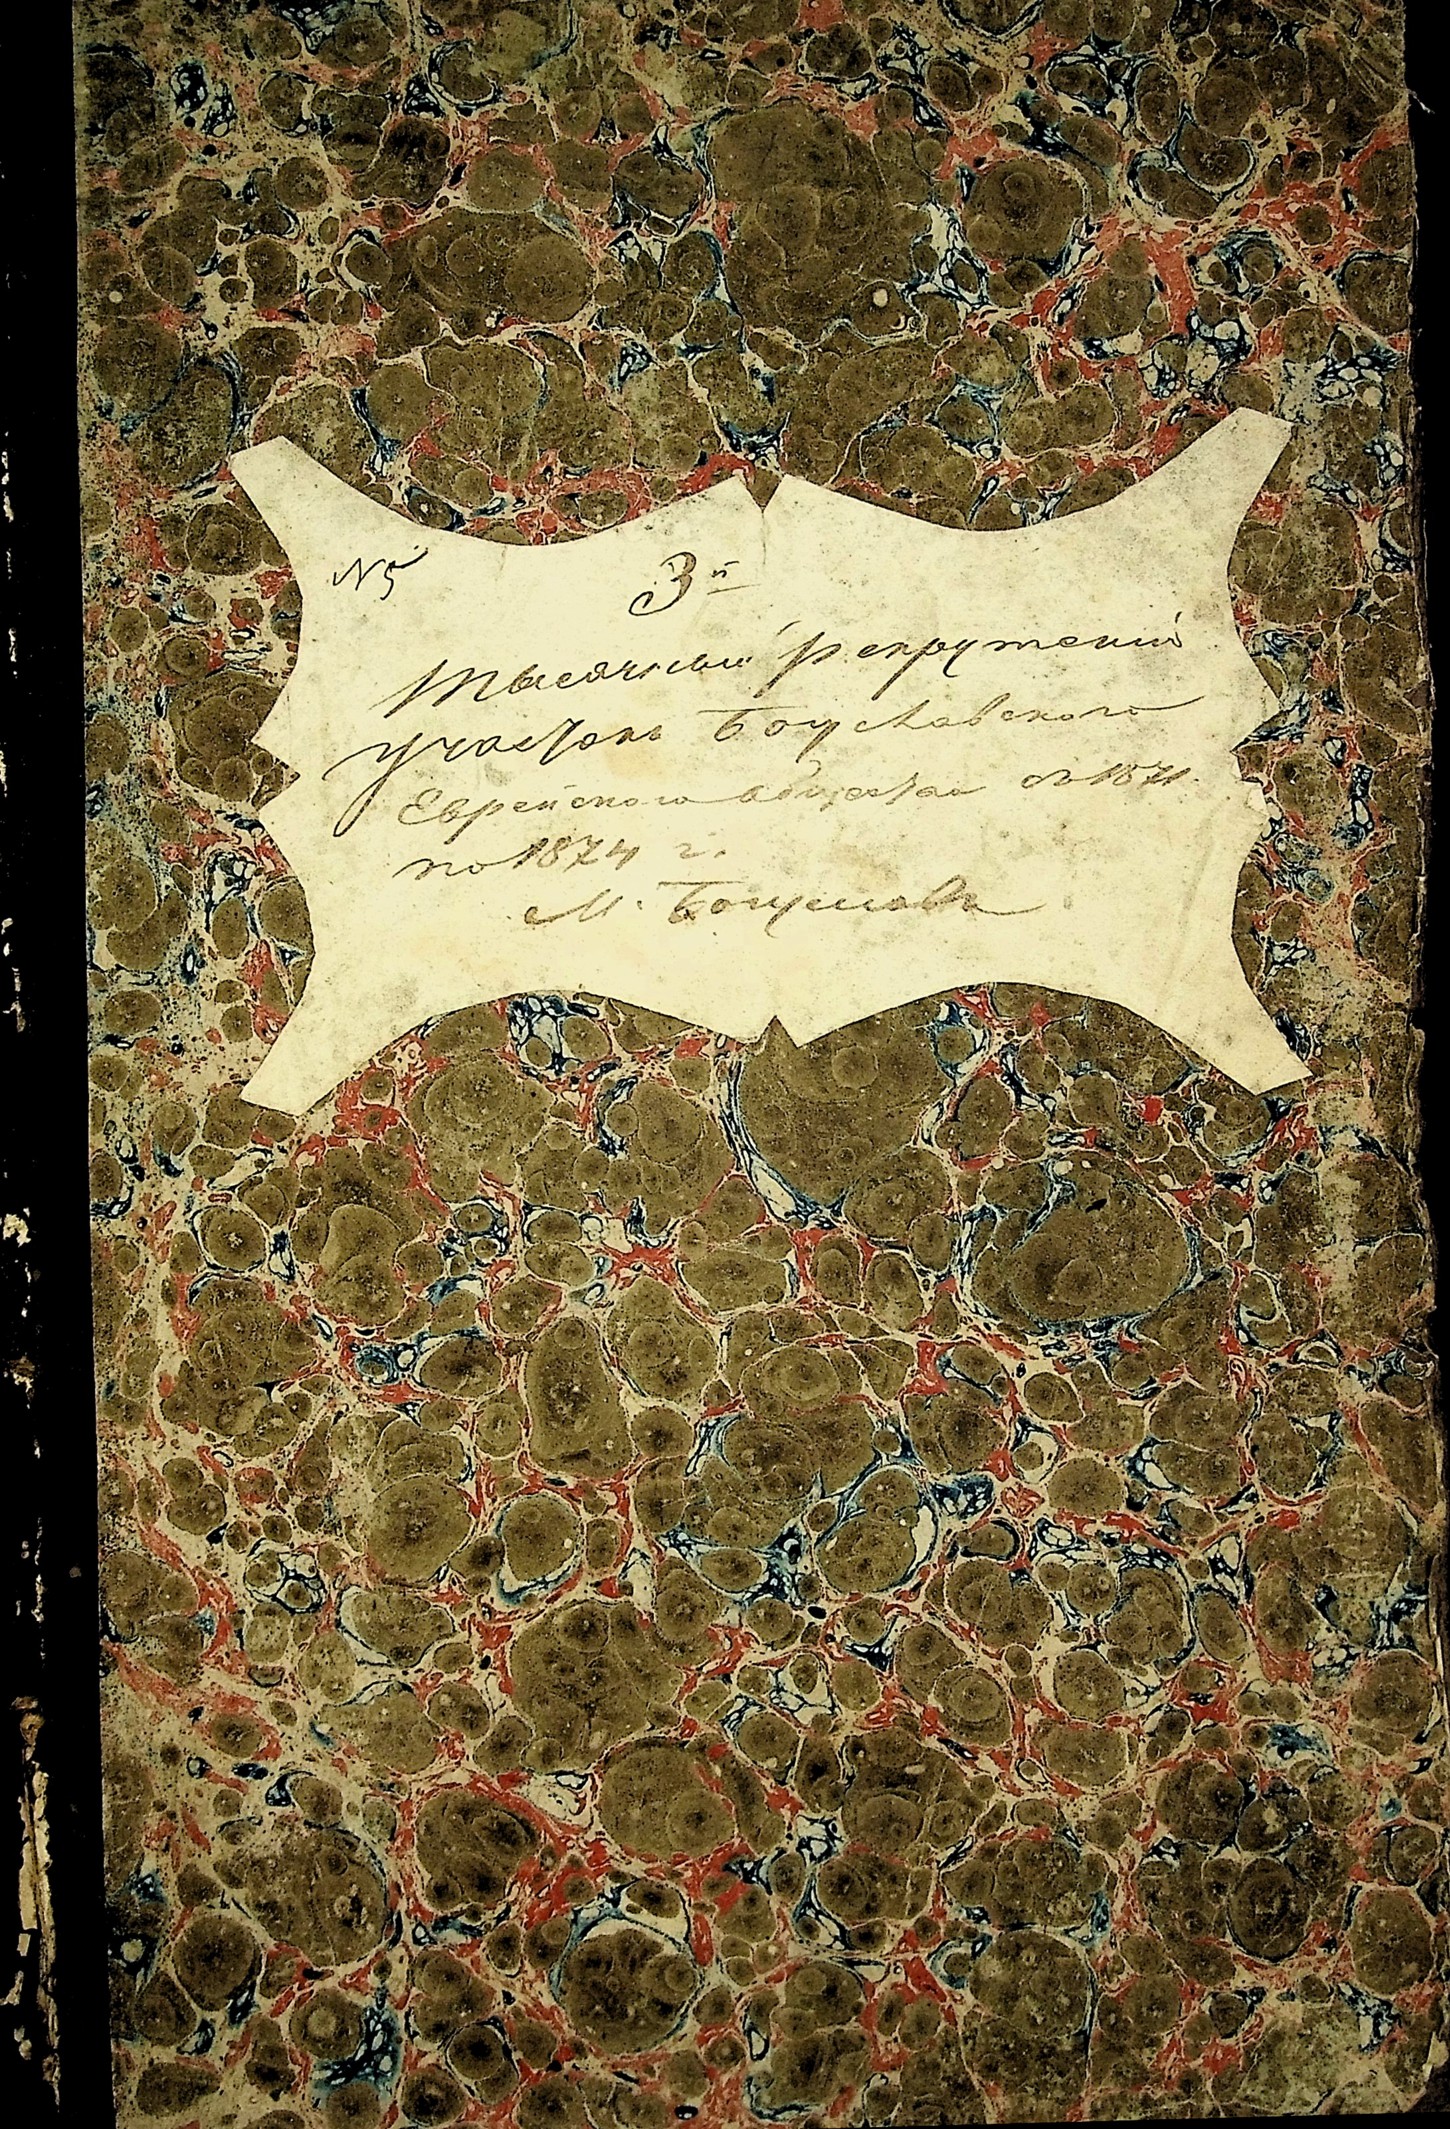 N5
3й
Тысячный рекрутский
участокъ Богуславского
Еврейского общества съ 1871
по 1874 г.
М. Богуславъ